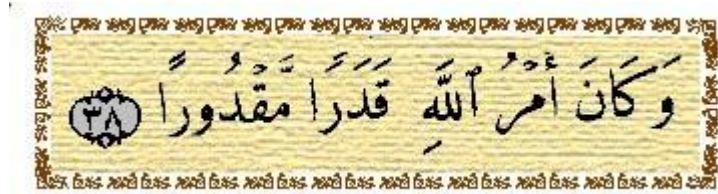 وَكَانَ أَمْرُ ٱللَّهِ قَدَرًا مَّقْدُورًا ٣٨